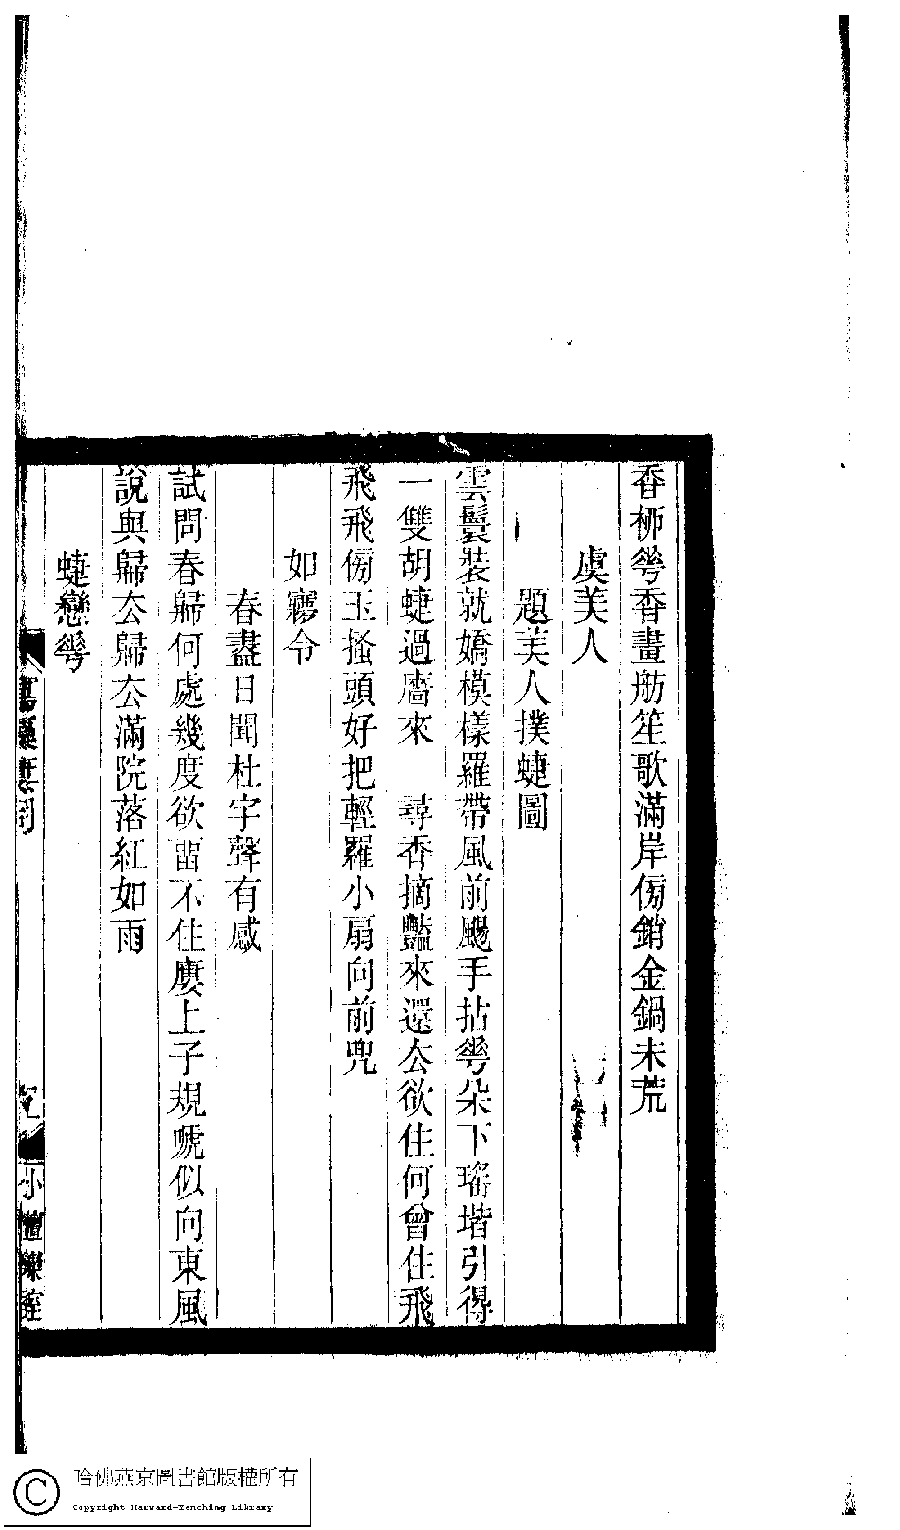 香桺蕚香畫舫笙歌滿岸傍銷金鍋未荒
虞美人
題美人撲蜨圖
雲鬟裝就嬌模樣羅帶風前颺手拈蕚朵下瑤堦引得
一雙胡蜨過廧來　尋香摘豔來還厺欲住何曾住飛
飛飛傍玉搔頭好把輕羅小扇向前兜
如㝱令
春盡日聞杜宇聲有感
試問春歸何處幾度欲畱不住廔上子規嗁似向東風
說與歸厺歸厺滿院落紅如雨
蜨戀蕚
小檀欒室
哈佛燕京圖書館版權所有
Copyright Harvard-Yenching Library